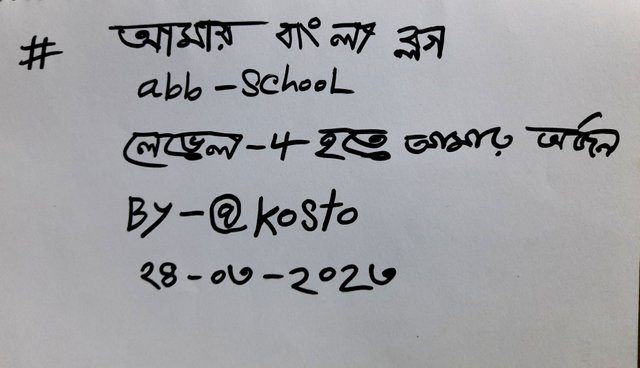 # আমার বাংলা ব্লগ
abb-School
লেভেল-4 হতে আমার অর্জন
By-@kosto
২৪-০৩-২০২৩